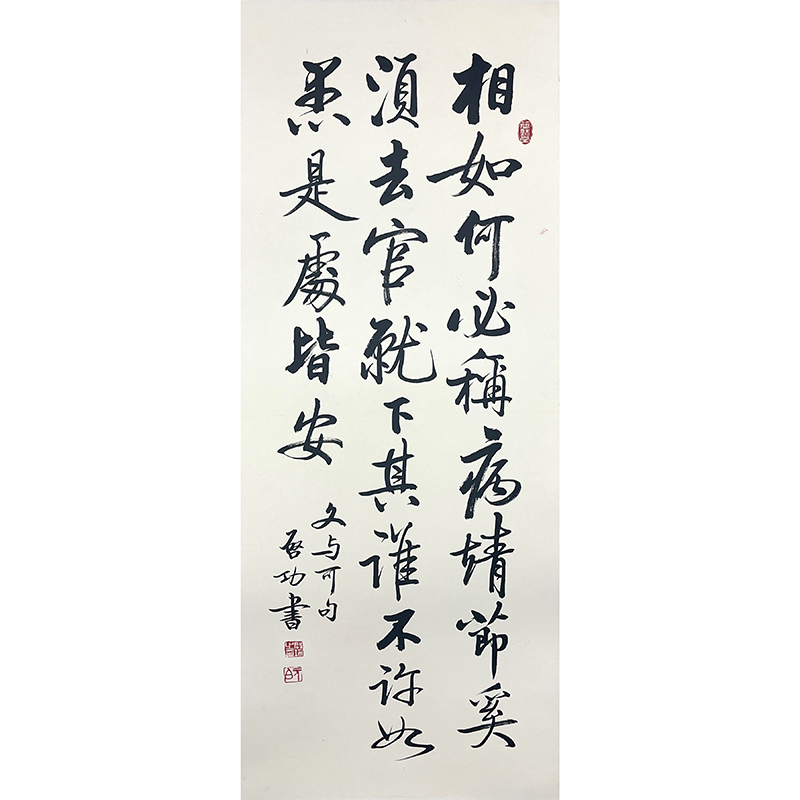 相如何必稱病靖節奚
須去官就下其誰不許如
愚是處皆安
文与可句
啓功書
元白